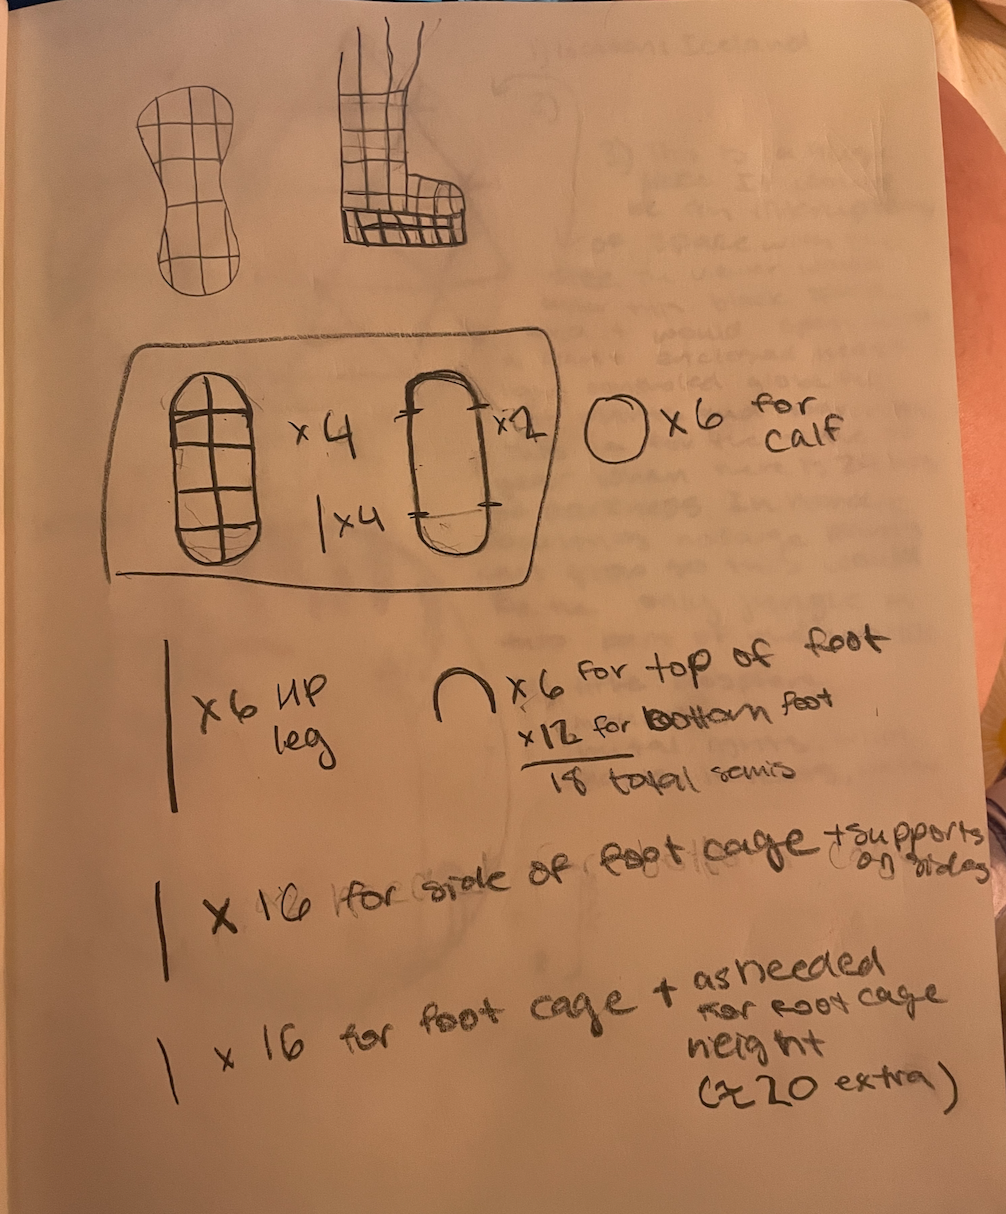 x 4
x2
x6 for
calf
x4
x6 up
leg
x6 for top of foot
x12 for bottom foot
18 total semis
x 16 for side of foot cage + supports
on sides
x 16 for foot cage + as needed
for foot cage
height
(≈ 20 extra)